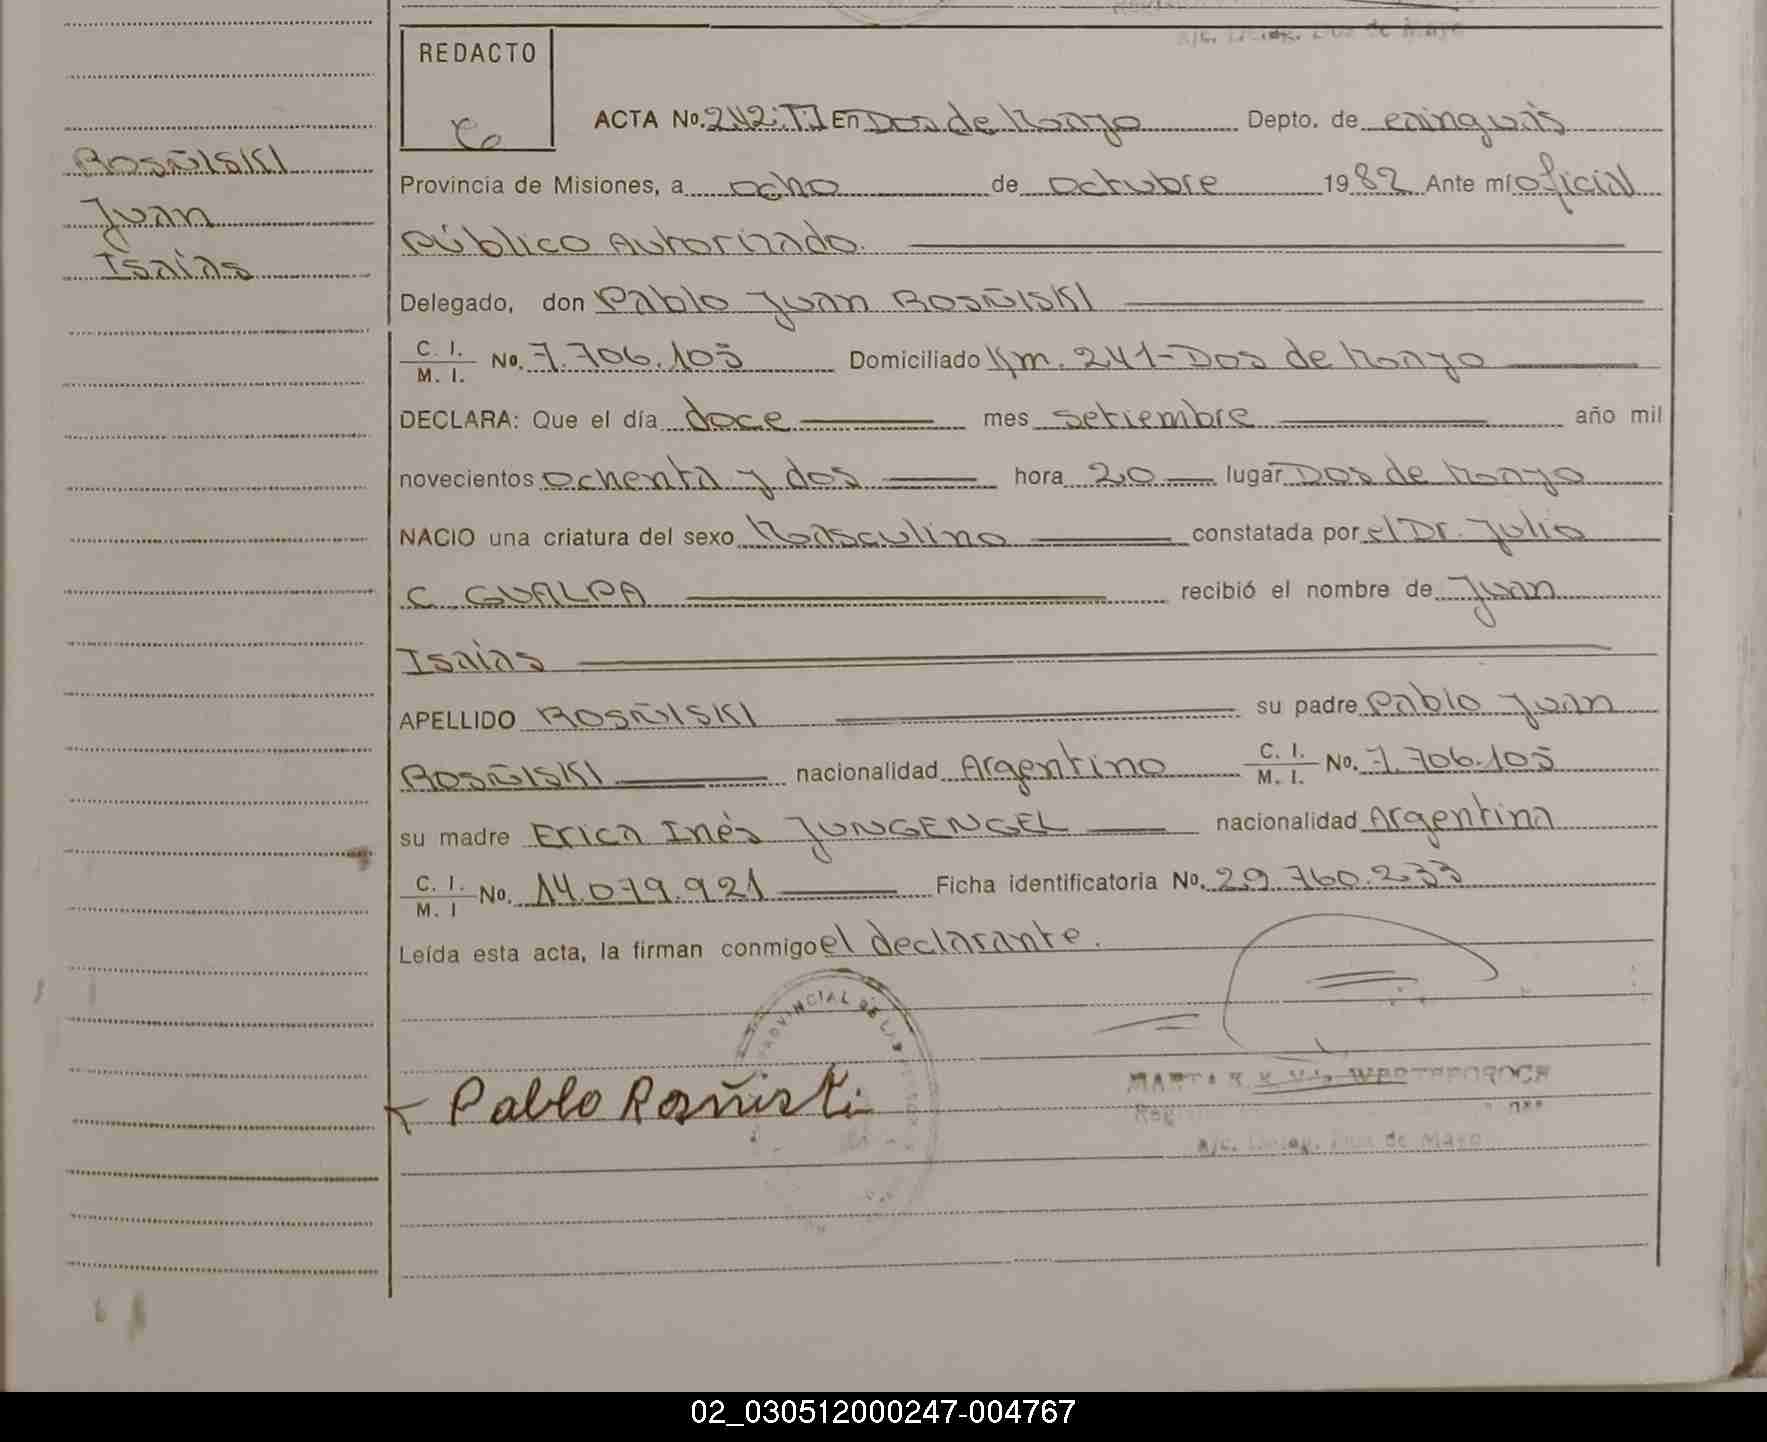 REDACTO
ACTA No. 242: T.I En Dos de Mayo Depto. de
ROSÑISKI
Juan
Isaías
Provincia de Misiones, a ocho de octubre 1982 Ante mí oficial
Público Autorizado.
Delegado, don Pablo Juan ROSÑISKI
C. I.
M. I. No. 7.706.105 Domiciliado Km. 241-Dos de Mayo
DECLARA: Que el día doce mes setiembre año mil
novecientos ochenta y dos hora 20 lugar Dos de Mayo
NACIO una criatura del sexo Masculino constatada por el Dr. Julio
C. GUALPA recibió el nombre de Juan
Isaías
APELLIDO ROSÑISKI su padre Pablo Juan
ROSÑISKI nacionalidad Argentino C. I.
M. I. No. 7.706.105
su madre Erica Inés JUNGENGEL nacionalidad Argentina
C. I.
M. I No. 14.079.921 Ficha identificatoria No. 29.760.233
Leída esta acta, la firman conmigo el declarante.
PROVINCIAL DE LAS
Pablo Rosñiski
a/c. Deleg. Dos de Mayo
02_030512000247-004767